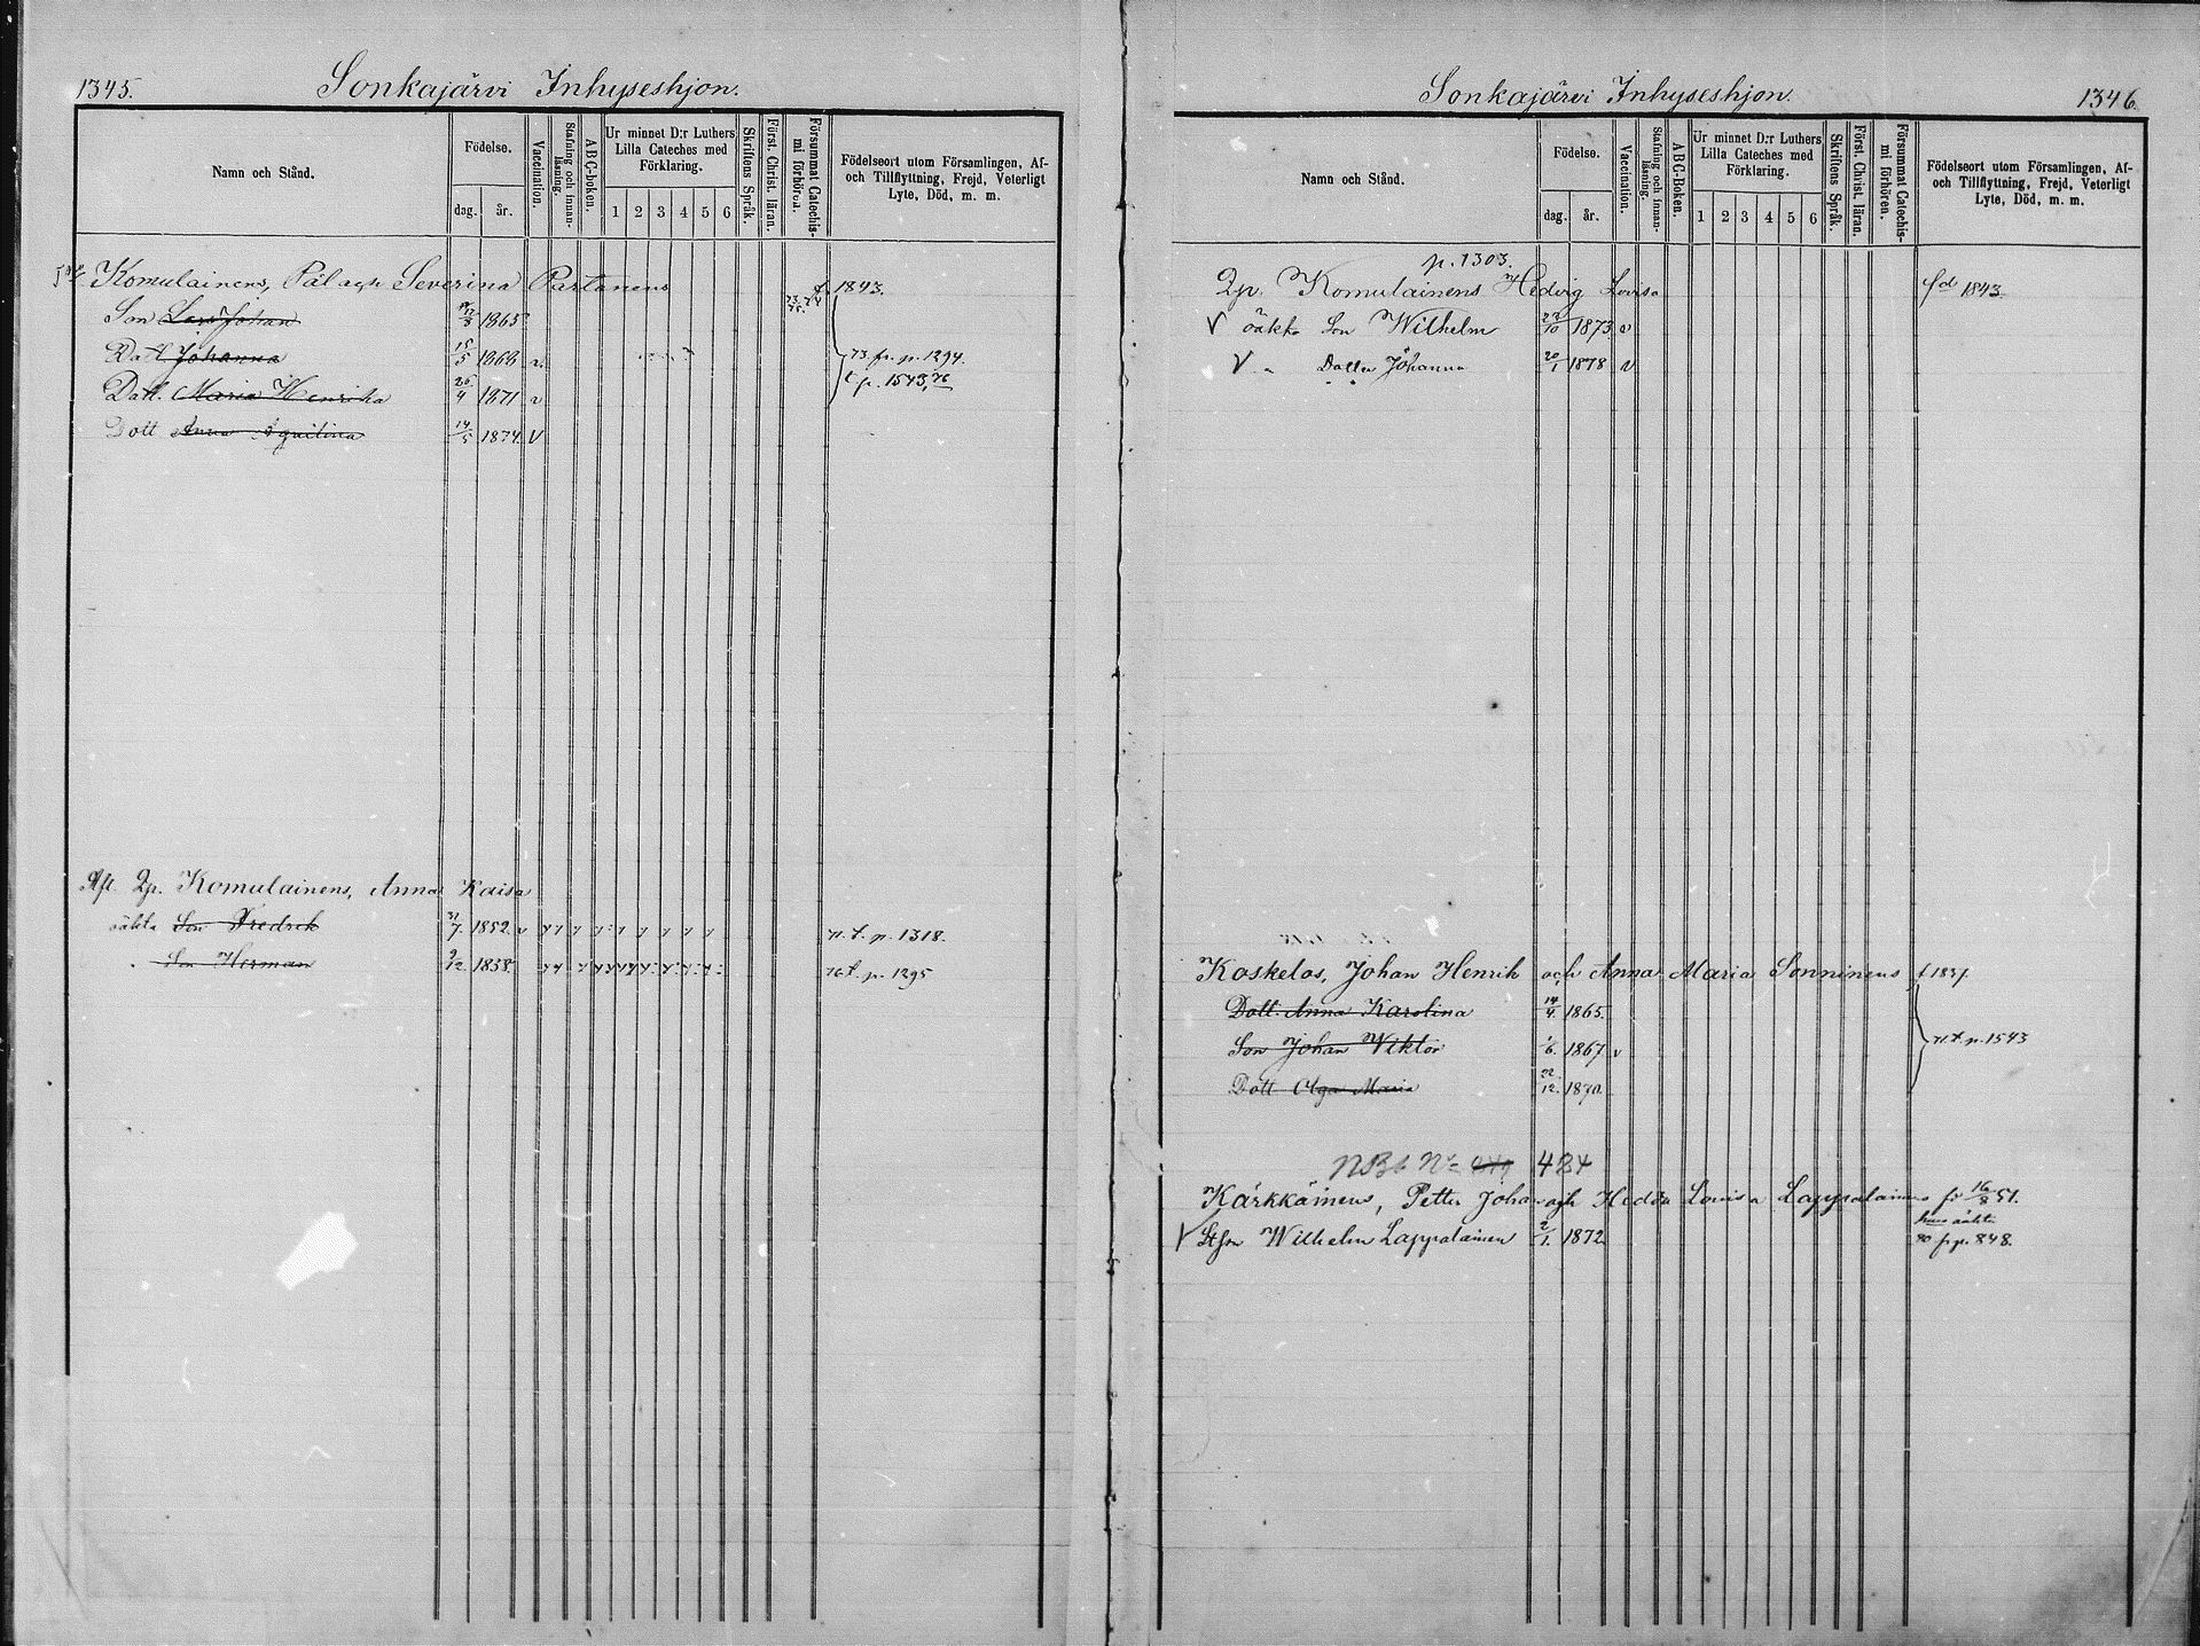 1345. Sonkajärvi Inhyseshjon.
Namn och Stånd.
Födelse.
dag. år.
Vaccination.
Stafning och innan-läsning.
ABC-boken.
Ur minnet D:r Luthers Lilla Cateches med Förklaring.
1 2 3 4 5 6
Skriftens Språk.
Först. Christ. läran.
Försummat Catechis-mi förhören.
Födelseort utom Församlingen, Af- och Tillflyttning, Frejd, Veterligt Lyte, Död, m. m.
Komulainens, Pål och Severina Partanens f. 1843.
Son Lars Johan 3 1865
Dott Johanna 15/5 1868 v. 73. fr. p. 1294.
Dott. Maria Henrika 26/4 1871 v t. p. 1543, 76
Dott Anna Aquilina 14/5 1874. V
Afl. Qp. Komulainens, Anna Kaisa
oäkta Son Fredrik 31/7 1852. v 71. t. p. 1318.
Son Herman 9/12 1858. 76 t. p. 1295
Sonkajärvi Inhyseshjon. 1346.
Namn och Stånd.
Födelse.
dag. år.
Vaccination.
Stafning och innan-läsning.
ABC-Boken.
Ur minnet D:r Luthers Lilla Cateches med Förklaring.
1 2 3 4 5 6
Skriftens Språk.
Först. Christ. läran.
Försummat Catechis-mi förhören.
Födelseort utom Församlingen, Af- och Tillflyttning, Frejd, Veterligt Lyte, Död, m. m.
p. 1303.
Qp. Komulainens Hedvig Lovisa fd 1843.
V oäkta Son Wilhelm 23/10 1873 v
V " Dotter Johanna 20/1 1878 v
Koskelos, Johan Henrik och Anna Maria Sonninens f. 1837.
Dott. Anna Karolina 14/4. 1865.
Son Johan Viktor 6. 1867. v 71. t. p. 1543
Dott Olga Maria 22/12. 1870.
484
Kärkkäinens, Petter Johan och Hedda Lovisa Lappalainens 16/8 51.
hans oäkta
V Stson Wilhelm Lappalainen 2/1. 1872. 80 fr p. 848.